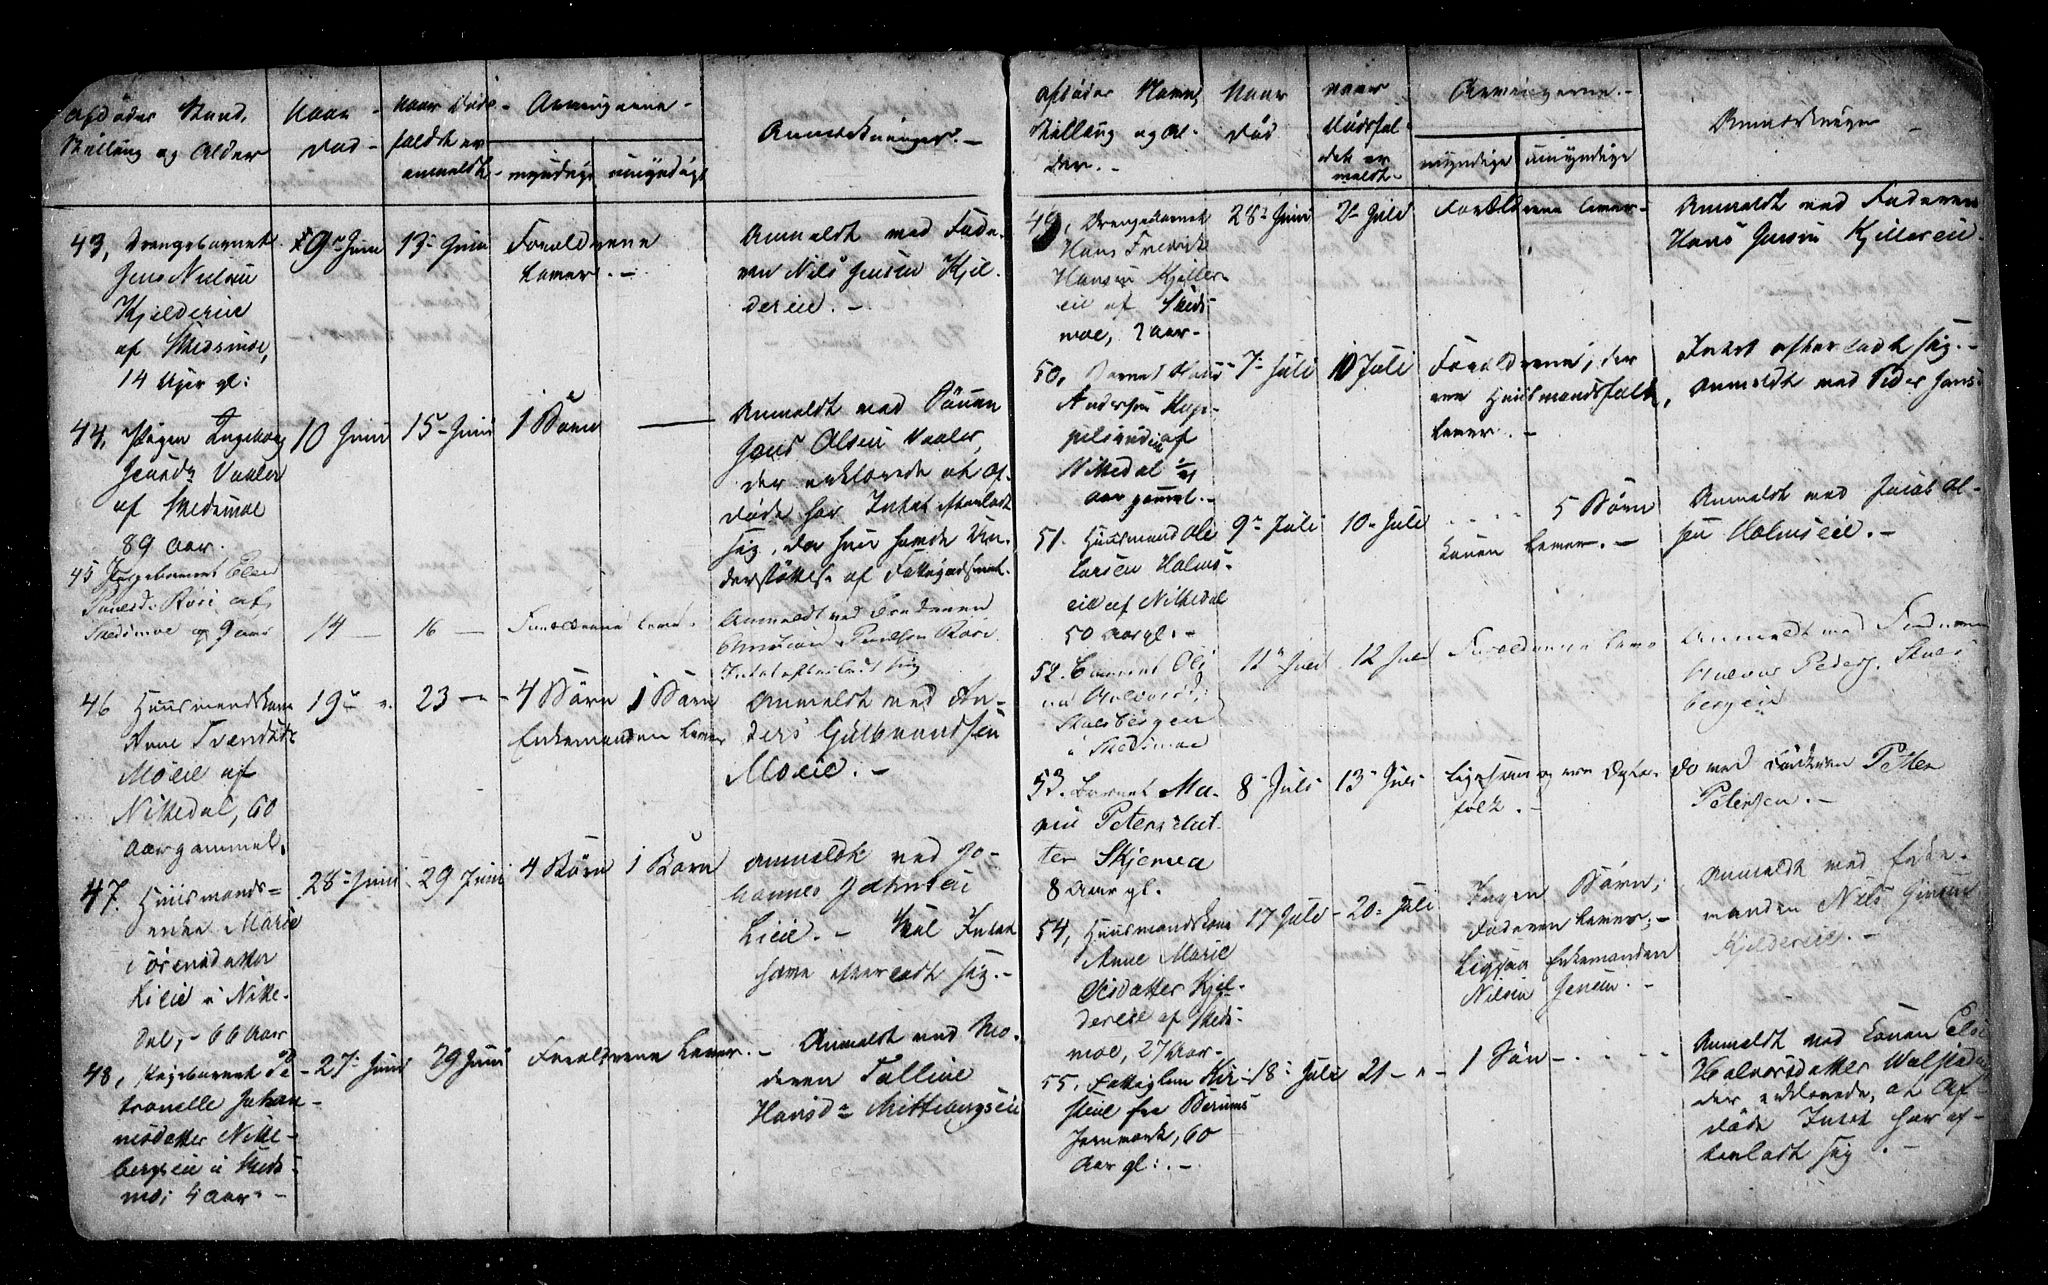 Afdødes Stand,
Stilling og Alder
Naar
Død
naar Døds-
faldet er
anmeldt
Arvingerne
myndige
umyndige
Anmærkninger. -
43, Drengebarnet
Jens Nielsen
Kjeldereie
af Skedsmoe,
14 Uger gl:
9de Juni
13de Juni
Forældrene
lever. -
Anmeldt ved Fade-
ren Nils Jensen Kjel-
dereie. -
44, Pigen Ingeborg
Jensdr Vaaler
af Skedsmoe
89 Aar.
10 Juni
15de Juni
1 Barn
Anmeldt ved Sønen
Jens Olsen Vaaler,
der erklærede at Af-
døde har Intet efterladt
sig, da hun havde Un-
derstøttelse af Fattigvæsenet.
45 Pigebarnet Elen
af
Skedsmoe og 9 aar
14 -
16 -
Forældrene lever.
Anmeldt ved Faderen
Christian
Intet efterladt sig
46 Huusmandskone
Anne Svendsdr
Moeie af
Nittedal, 60
Aar gammel.
19de
23
4 Børn
1 Barn
Enkemanden lever
Anmeldt ved An-
ders Gulbrandsen
Moeie. -
47. Huusmands-
enke Marie
Sørensdatter
Lieie i Nitte-
dal, - 66 Aar
28de Juni
29 Juni
4 Børn
1 Barn
Anmeldt ved Jo-
hannes Johnsen
Lieie. - Skal Intet
have efterladt sig. -
48, Pigebarnet Pe-
tronelle Johan-
nesdatter Nitte-
bergseie i Skeds-
moe; 4 Aar. -
27de Juni
29 Juni
Forældrene lever. -
Anmeldt ved Mo-
deren
Hansdr Nittebergseie
Afdødes Navn,
Stilling og Al-
der. -
Naar
Død
naar
Dødsfal-
det er
meldt. -
Arvingerne. -
myndige
umyndige
Anmærkninger -
49, Drengebarnet
Hans Fredrik
Hansen Kjeller-
eie af Skeds-
moe, 2 Aar -
28de Juni
2de Juli
Forældrene lever -
Anmeldt ved Faderen
Hans Jensen Kjellereie.
50, Barnet Hans
Andersen
af
Nittedal 1/21
Aar gammel. -
7de Juli
10 Juli
Forældrene, der
ere Huusmandsfolk,
lever. -
Intet efterladt sig. -
Anmeldt ved Peder Hans-
51. Huusmand Ole
Larsen Holms-
eie af Nittedal
50 Aar gl. -
9de Juli
10de Juli
5 Børn
Konen lever. -
Anmeldt ved Jacob Ol-
sen Holmseie. -
52. Barnet Oli-
ne
Skarsbergeie
i Skedsmoe
11te Juli
12 Juli
Forældrene leve
Anmeldt ved Faderen
Halvor Peders.
bergeie
53. Barnet Ma-
rie Petersdat-
ter Skjerva
8 Aar gl.
8de Juli
13de Juli
Ligesaa og ere
folk. -
Do ved Faderen Petter
Petersen. -
54, Huusmandskone
Anne Marie
Olsdatter Kjel-
dereie af Skeds-
moe, 27 Aar -
17 Juli -
20de Juli
Ingen Børn;
Faderen lever; -
Ligesaa Enkemanden
Nilsen Jensen. -
Anmeldt ved Enke-
manden Nils Jensen
Kjeldereie. -
55. Fattiglem
fra Bærums
Jernværk, 60
Aar gl: -
18de Juli
21 - " -
1 Søn -
Anmeldt ved Konen Else
Halvorsdatter
der erklærede, at Af-
døde Intet har ef-
terladt sig. -